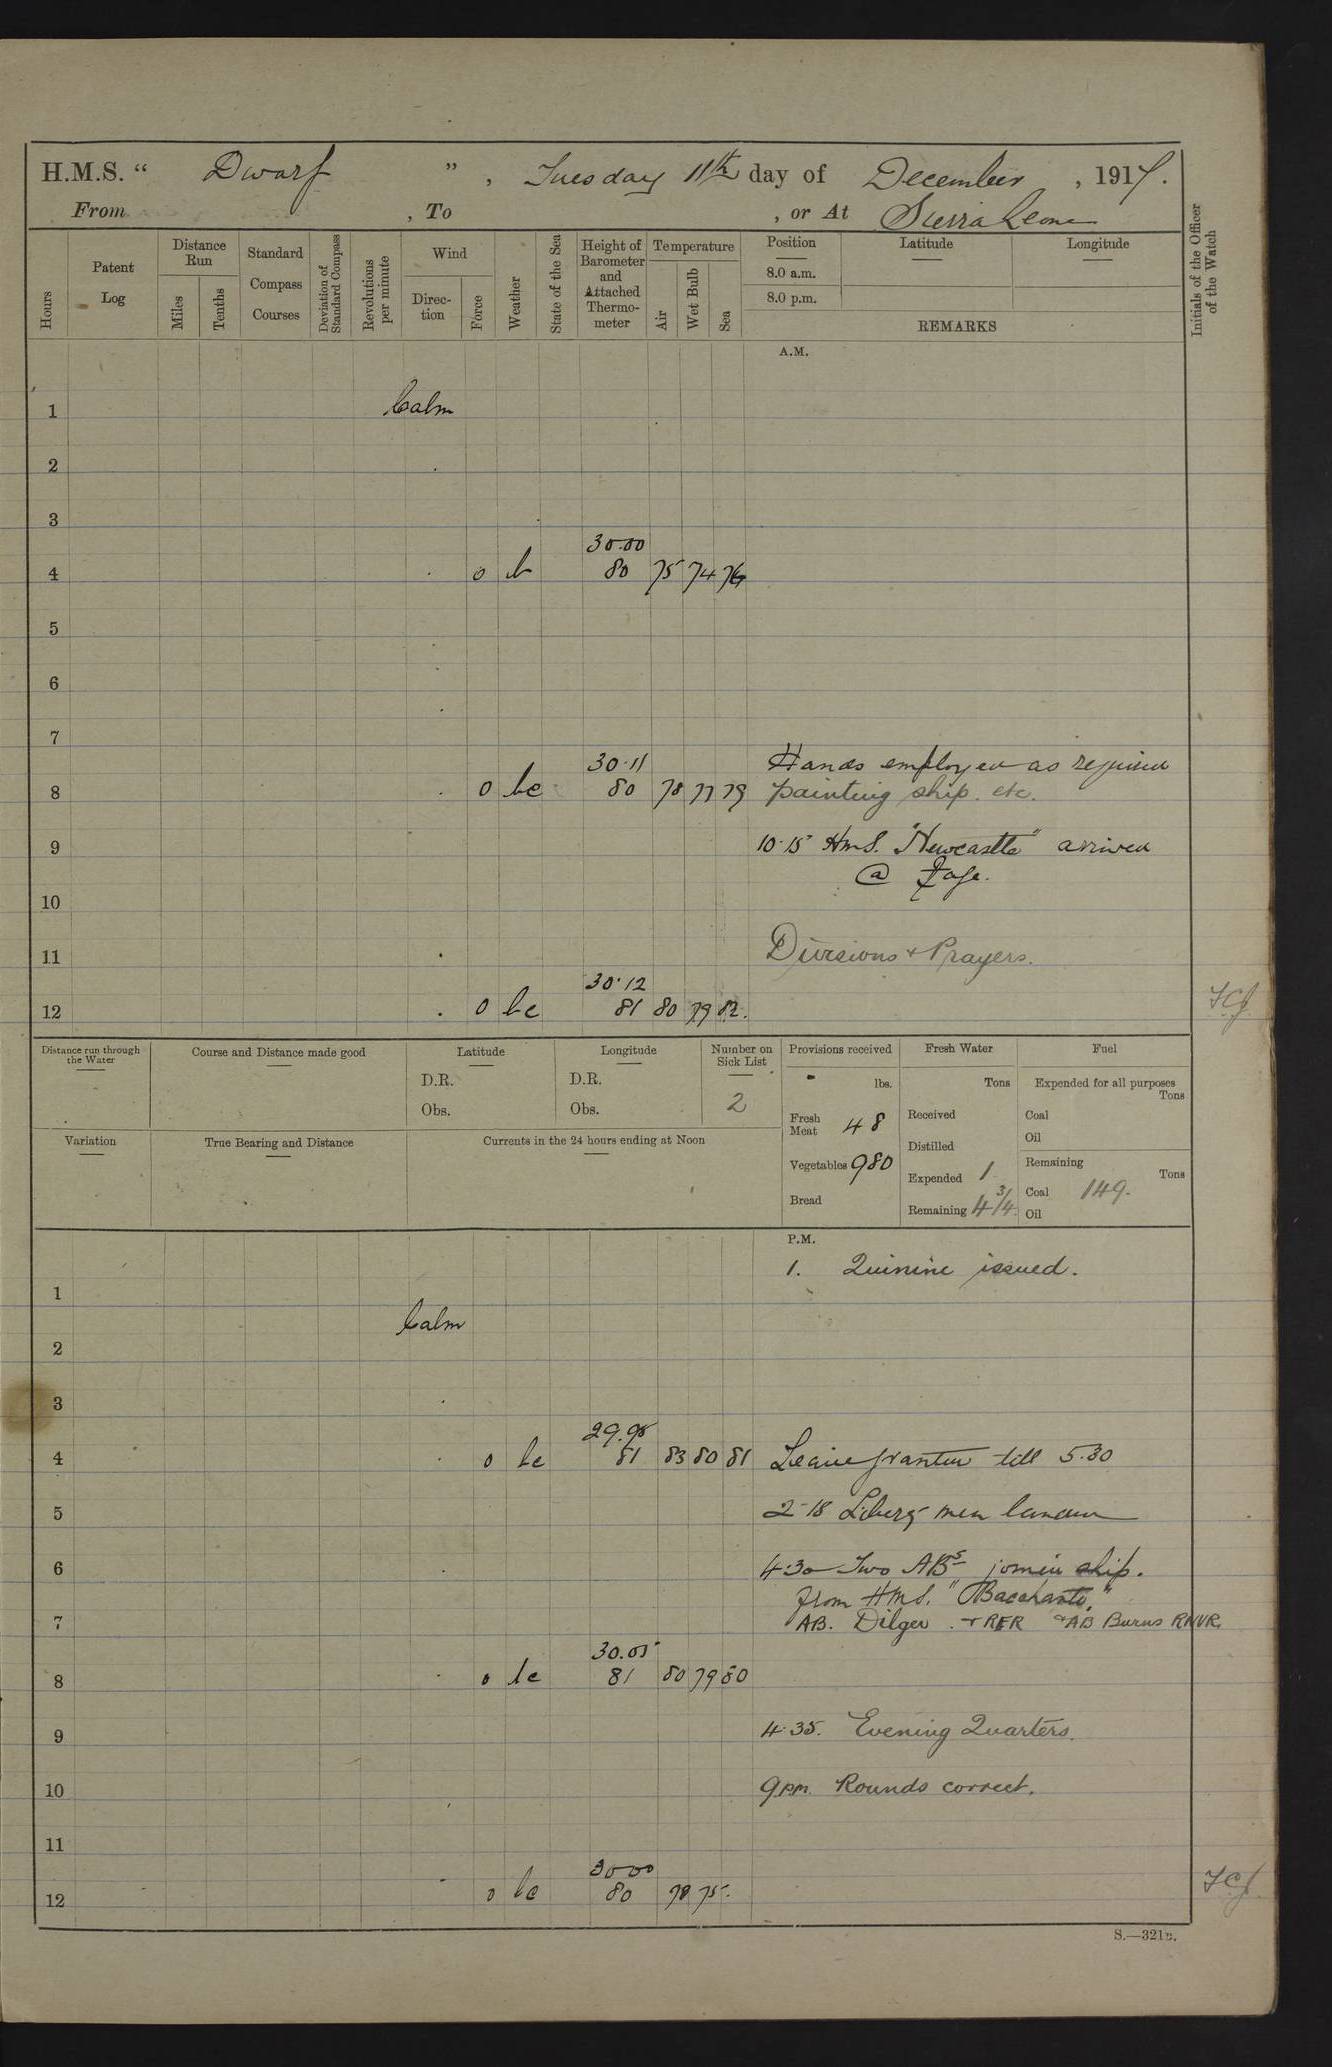 H.M.S. “ Dwarf ” , Tuesday 11th day of December , 1917.
From , To , or At Sierra Leone
Hours
Patent Log
Distance Run
Miles
Tenths
Standard Compass Courses
Deviation of Standard Compass
Revolutions per minute
Wind
Direc-tion
Force
Weather
State of the Sea
Height of Barometer and Attached Thermo-meter
Temperature
Air
Wet Bulb
Sea
Position
8.0 a.m.
8.0 p.m.
Latitude
Longitude
REMARKS
Initials of the Officer of the Watch
A.M.
1 Calm
2
3
30.00
4 0 b 80 75 74 76
5
6
7
30.11 Hands employed as required
8 0 bc 80 78 77 79 painting ship. etc.
9 10.15 H.M.S. "Newcastle" arrived
@
10
11 Divisions + Prayers.
30.12
12 0 bc 81 80 79 82.
Distance run through the Water
Course and Distance made good
Latitude
D.R.
Obs.
Longitude
D.R.
Obs.
Number on Sick List
2
Provisions received
lbs.
Fresh Meat 48
Vegetables 980
Bread
Fresh Water
Tons
Received
Distilled
Expended 1
Remaining 4 3/4
Fuel
Expended for all purposes
Tons
Coal
Oil
Remaining
Tons
Coal 149.
Oil
Variation
True Bearing and Distance
Currents in the 24 hours ending at Noon
P.M.
1. Quinine issued.
1
Calm
2
3
29.95
4 0 bc 81 83 80 81 Leave granted till 5.30
5 2.18 Liberty men landed
6 4.30 Two ABs join ship.
from H.M.S. "Bacchante,"
7 AB. Dilger RFR + AB Burns RNVR.
30.05
8 0 bc 81 80 79 80
9 4.35. Evening Quarters.
10 9 pm. Rounds correct.
11
30.00
12 0 bc 80 78 75.
S.—321B.